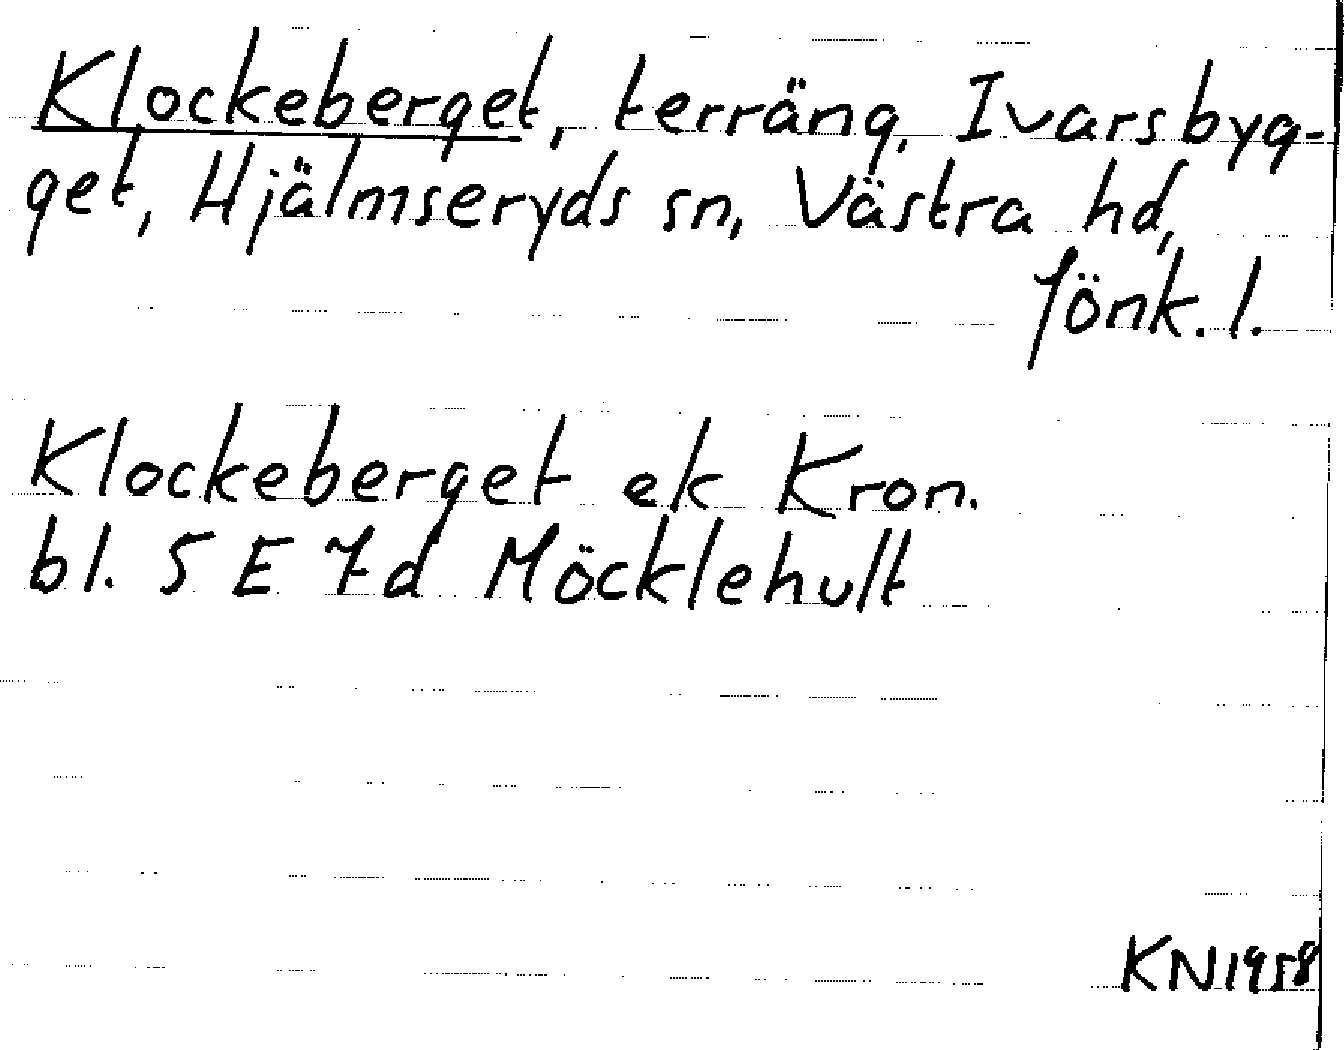 Klockeberget, terräng, Ivarsbyg-
get, Hjälmseryds sn, Västra hd,
Jönk. l.
Klockeberget ek Kron.
bl. 5 E 7d Möcklehult
KN1958